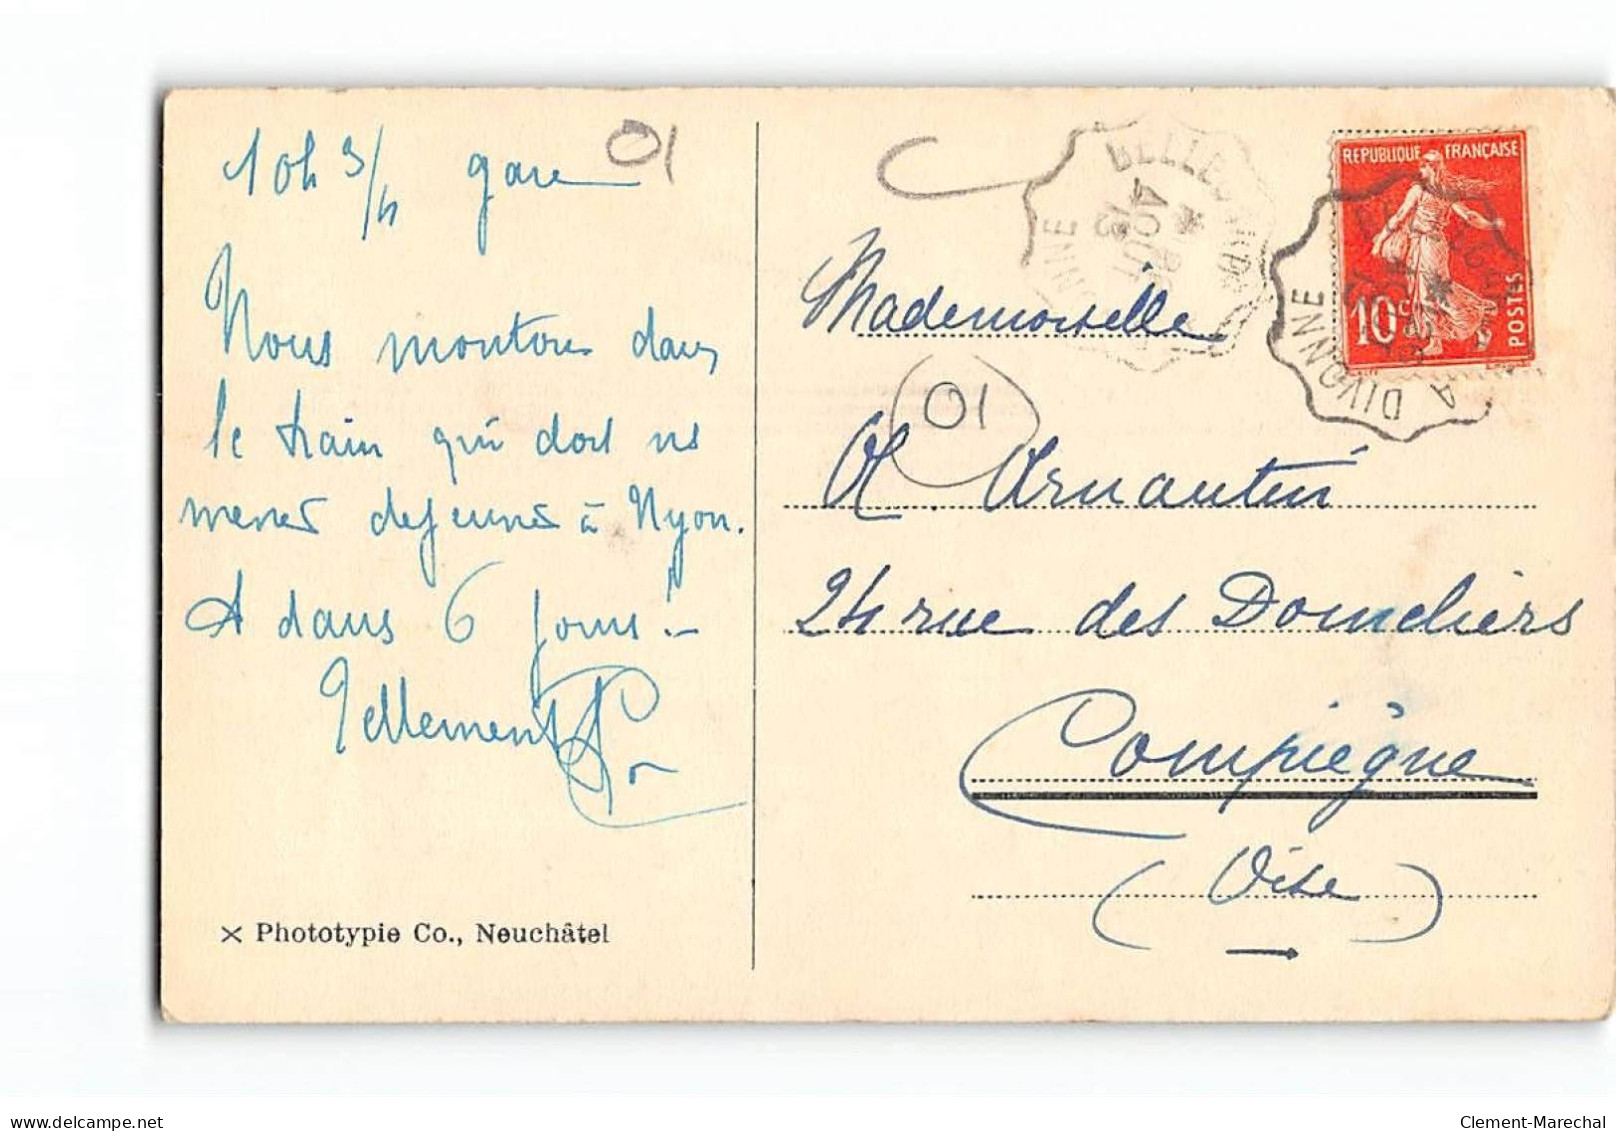 10h 3/4 gare
01
Nous montons dans
le train qui doit ns
mener dejeuner à Nyon.
A dans 6 jours !
Tellement
X Phototypie Co., Neuchâtel
BELLEGARDE
4 AOUT
13
A DIVONNE
REPUBLIQUE FRANÇAISE
10c
POSTES
Mademoiselle
01
Arnautin
24 rue des Domeliers
Compiègne
(Oise)
Clement-Marechal